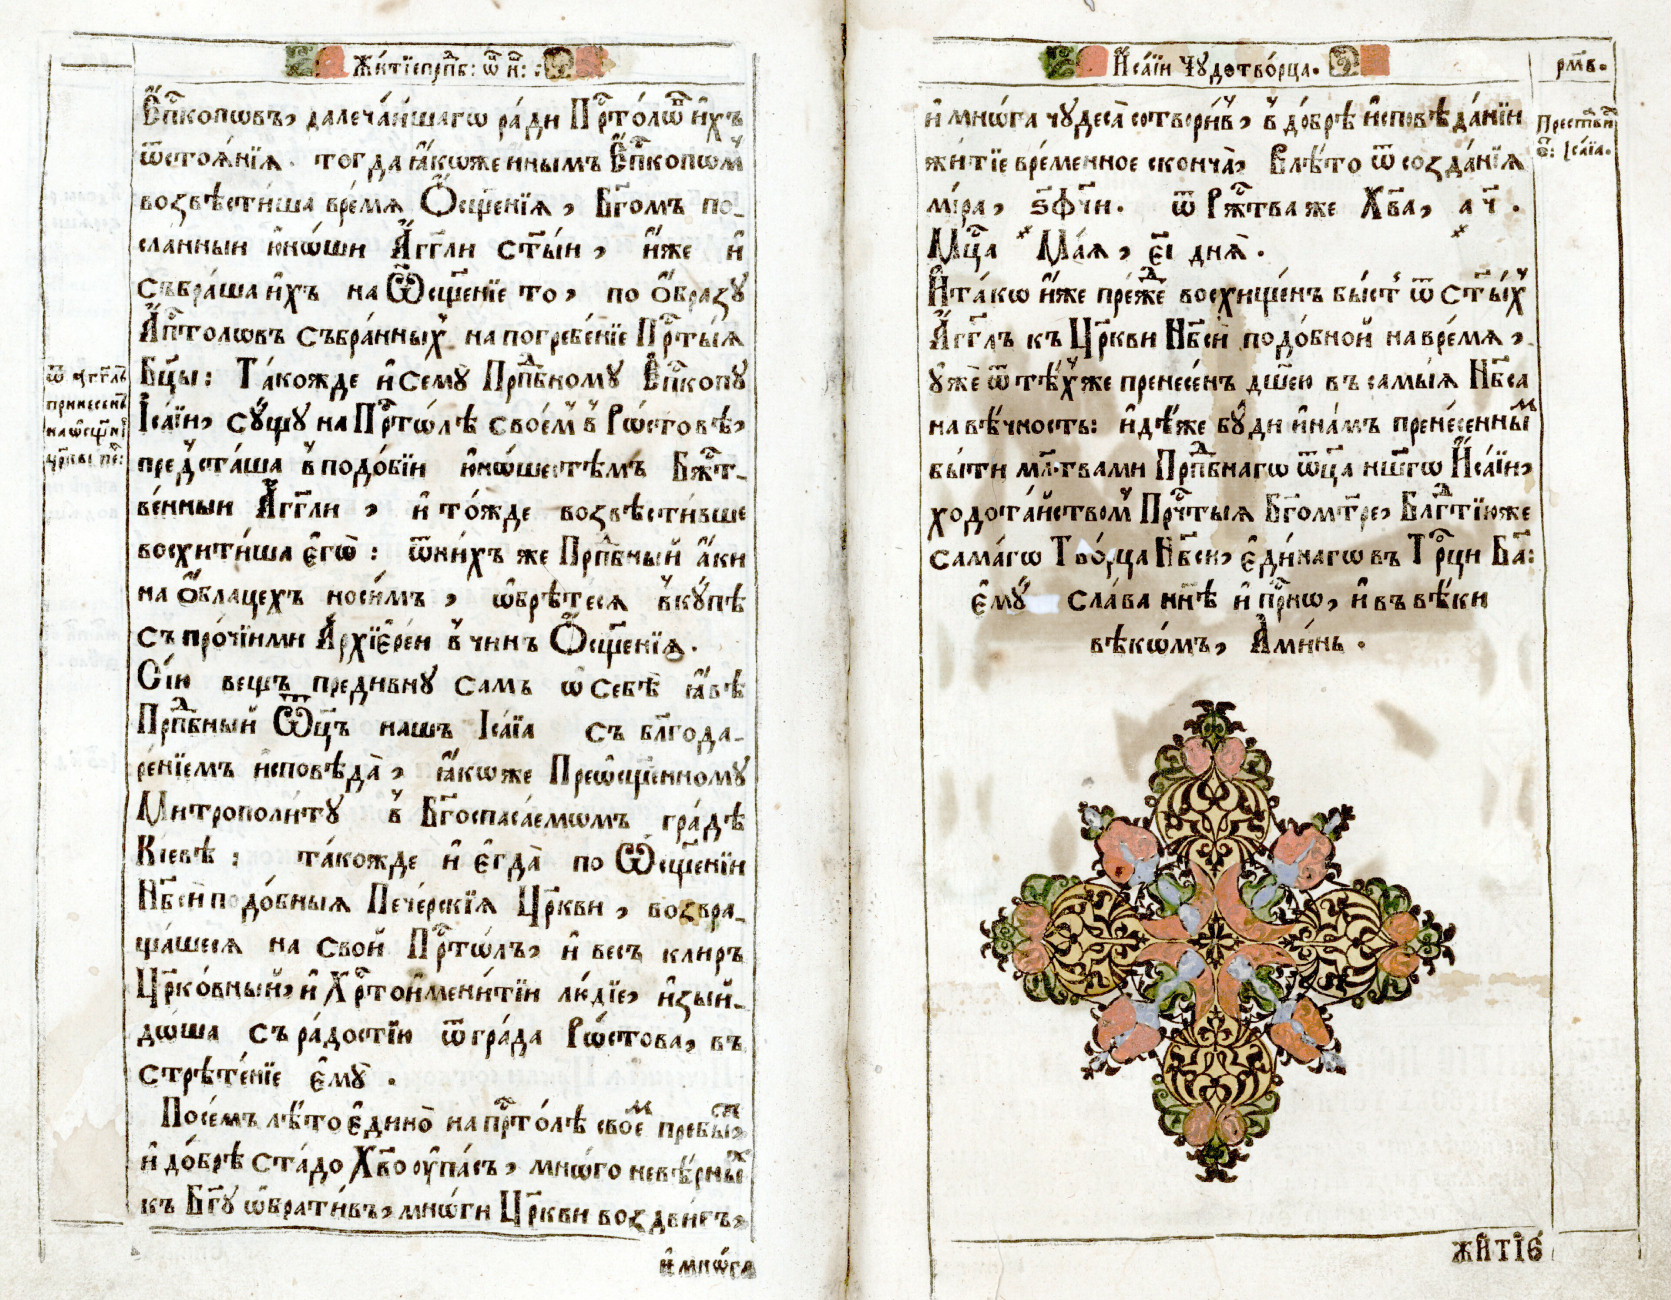 Житїе прпб: ѿ н҃:
Е҆пⷭ҇копѡвъ, далеча́йшагѡ ра́ди Прⷭ҇то́лѡⷡ҇ и҆́хъ
ѿстоѧ́нїѧ. тогда ꙗ҆́коже и҆ннымъ Е҆пⷭ҇копѡⷨ
возвѣсти́ша вре́мѧ Ѡ҆сщ҃е́нїѧ, Бг҃омъ по-
сланныи ю҆нѡши А҆́гг҃ли ст҃ы́и, и҆́же и҆
събра́ша и҆́хъ на Ѡ҆сщ҃е́нїе то, по ѻ҆́бразꙋ
А҆пⷭ҇толѡвъ събра́нныⷯ на погребе́нїе Прⷭ҇ты́ѧ
Бцⷣы: Та́кожде и҆ семꙋ Прпⷣбномꙋ Е҆пⷭ҇копꙋ
ѿ а҆́гг҃лъ
принесенъ
на ѡ҆сщ҃нї
црк҃ви пе:
І҆са́їи, сꙋ́щꙋ на Прⷭ҇то́лѣ свое́мъ в Рѡ́стовѣ,
преⷣста́ша в подо́бїи ю҆́нѡшестѣмъ Бжⷭ҇т-
ве́нныи А҆́гг҃ли, и҆ то́жде возвѣсти́вше
восхити́ша є҆го̀: ѿ ни́хъ же Прпⷣбный а҆́ки
на ѻ҆́блацехъ носи́мъ, ѡ҆брѣ́тесѧ вкꙋ́пѣ
съ про́чїими А҆рхїере́и в чинъ Ѡ҆сщ҃е́нїѧ.
Сїю̀ вещъ предивнꙋ самъ ѡ҆ себѣ̀ ꙗ҆́вѣ
Прпⷣбный Ѿц҃ъ нашъ І҆са́їа съ блг҃ода-
ре́нїемъ и҆сповѣ́да̀, ꙗ҆́коже Преѡ҆сщ҃е́нномꙋ
Митрополи́тꙋ в Бг҃оспаса́емѡмъ гра́дѣ
Кі́евѣ: та́кожде и҆ є҆гда̀ по Ѡ҆сщ҃е́нїи
Нб҃сѝ подо́бныѧ Пече́рскїѧ Цр҃кви, возвра-
ща́шесѧ на свой Прⷭ҇то́лъ, и҆ весь клиръ
Цр҃ко́вный, и҆ Хрⷭ҇тоимени́тїи лю́дїе, и҆зый-
до́ша съ ра́достїю ѿ гра́да Рѡ́стова, въ
стрѣте́нїе є҆мꙋ̀.
Посе́мъ лѣ́то є҆дино̀ на прⷭ҇толѣ своеⷨ пребы́сⷮь,
и҆ до́брѣ ста́до Хв҃о ᲂу҆па́съ, мно́го невѣ́рныⷯ
къ Бг҃ꙋ ѡ҆брати́въ, мнѡ́ги Цр҃кви воздви́гъ,
и҆ мнѡ́га
И҆са́їи Чꙋдотво́рца.
рм҃в.
и҆ мнѡ́га чꙋдеса̀ сотвори́въ, в до́брѣ и҆сповѣ́данїи
жи́тїе вре́менное сконча̀, В лѣ́то ѿ созда́нїѧ
Преставлⷭ҇ нⷷ
є҃: І҆са́їа.
мі́ра, ҂ѕ҃фч҃и. ѿ Ржⷭ҇тва же Хв҃а, ҂а҃ч.
Мцⷭ҇а Ма́ѧ, є҃і дна̀.
И҆ та́кѡ и҆́же пре́жⷣе восхище́нъ бы́сть ѿ ст҃ы́хъ
А҆́гг҃лъ къ Цр҃кви Нб҃сѝ подо́бной на вре́мѧ,
ᲂу҆жѐ ѿ тѣ́хже пренесе́нъ дш҃ею въ самыѧ Нб҃са
на вѣ́чность: и҆дѣ́же бꙋ́ди и҆ на́мъ пренесе́ннымъ
бы́ти мл҃твами Прпⷣбнагѡ ѿц҃а нш҃гѡ И҆са́їи,
ходота́йствомъ Прⷭ҇ты́ѧ Бг҃омт҃ре, Блгⷣтїю же
сама́гѡ Тво́рца Нб҃си, є҆ди́нагѡ въ Трⷪ҇ци Бг҃а:
є҆мꙋ̀ сла́ва нн҃ѣ и҆ прⷭ҇нѡ, и҆ въ вѣ́ки
вѣкѡ́мъ, А҆ми́нь.
житїє